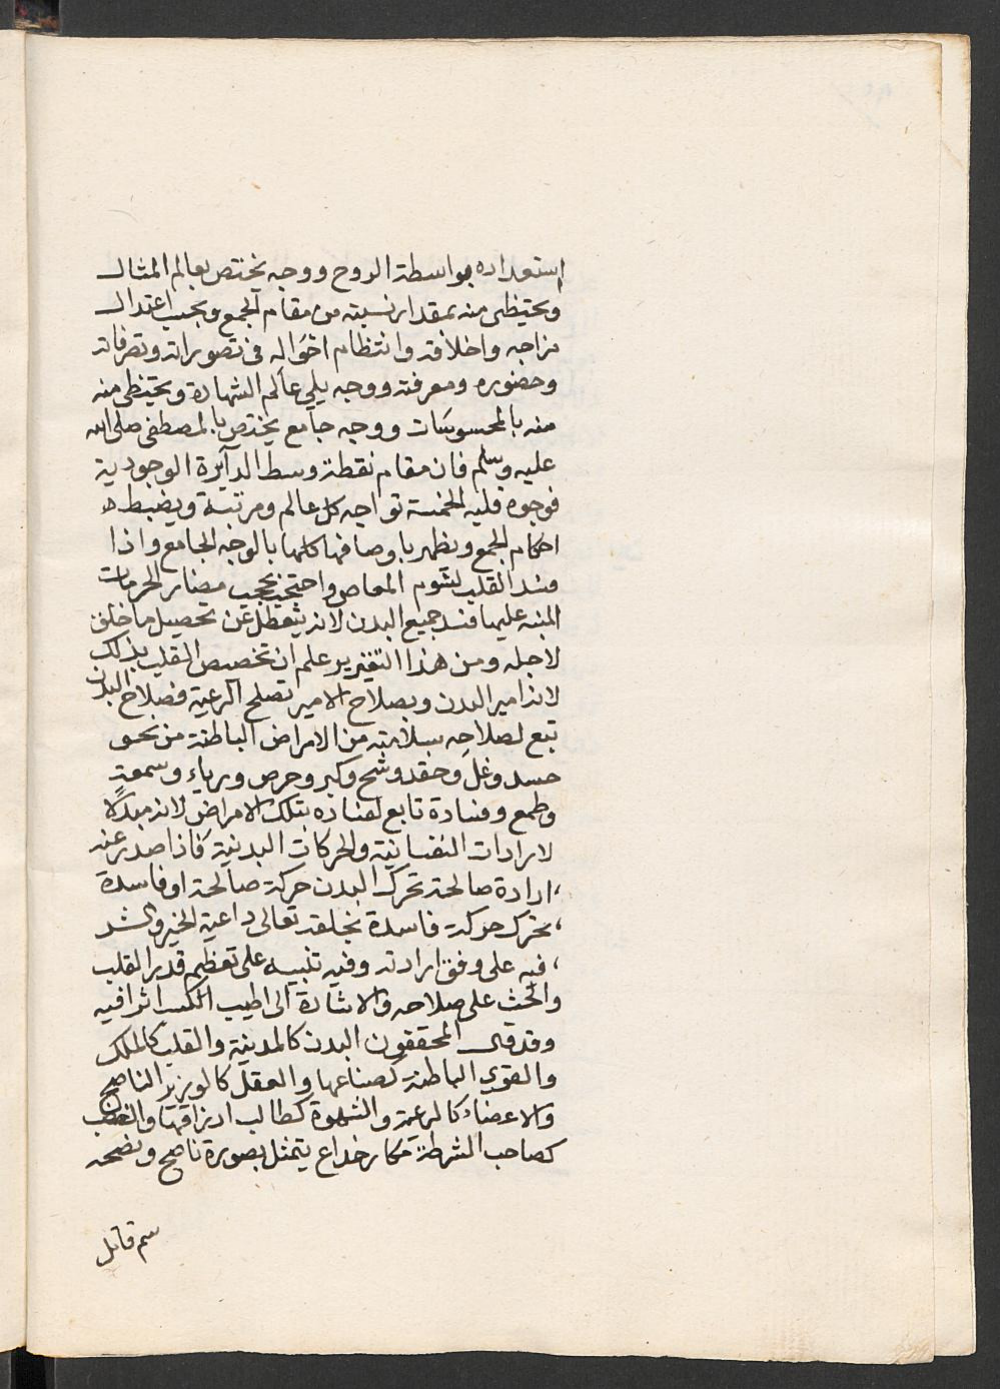 استعداده بواسطة الروح ووجه يختص بعالم المثال
ويحتظى منه بمقدار نسبته من مقام الجمع وبحسب اعتدال
مزاجه واخلاقه وانتظام احواله في تصوراته وتصرفاته
وحضوره ومعرفته ووجه يلي عالم الشهادة ويحتظى منه
منه بالمحسوسات ووجه جامع يختص بالمصطفى صلى الله
عليه وسلم فان مقامه نقطة وسط الدآيرة الوجودية
فوجوه قلبه الخمسة تواجه كل عالم ومرتبة ويضبط
احكام الجمع ويظهر باوصافها كلها بالوجه الجامع واذا
فسد القلب بشوم المعاصي واحتجب بحجب مضار الحرمات
المنبه عليها فسد جميع البدن لانه يتعطل عن تحصيل ما خلق
لاجله ومن هذا التقرير علم ان تخصيص القلب بذلك
لانه امير البدن وبصلاح الامير تصلح الرعية فصلاح البدن
تبع لصلاحه بسلامته من الامراض الباطنة من نحو
حسد وغل وحقد وشح وكبر وحرص ورياء وسمعة
وطمع وفساده تابع لفساده بتلك الامراض لانه مبدأ
لارادات النفسانية والحركات البدنية فاذا صدر عنه
ارادة صالحة تحرك البدن حركة صالحة او فاسدة
تحرك حركة فاسدة بخلقه تعالى داعية الخير والشر
فيه على وفق ارادته وفيه تنبيه على تعظيم قدر القلب
والحث على صلاحه والاشارة الى اطيب الكسب اثرا فيه
وقد قال المحققون البدن كالمدينة والقلب كالملك
والقوى الباطنة كصناعها والعقل كالوزير الناصح
والاعضاء كالرعية والشهوة كطالب ارزاقها والغضب
كصاحب الشرطة مكار خداع يتمثل بصورة ناصح ونصحه
سم قاتل